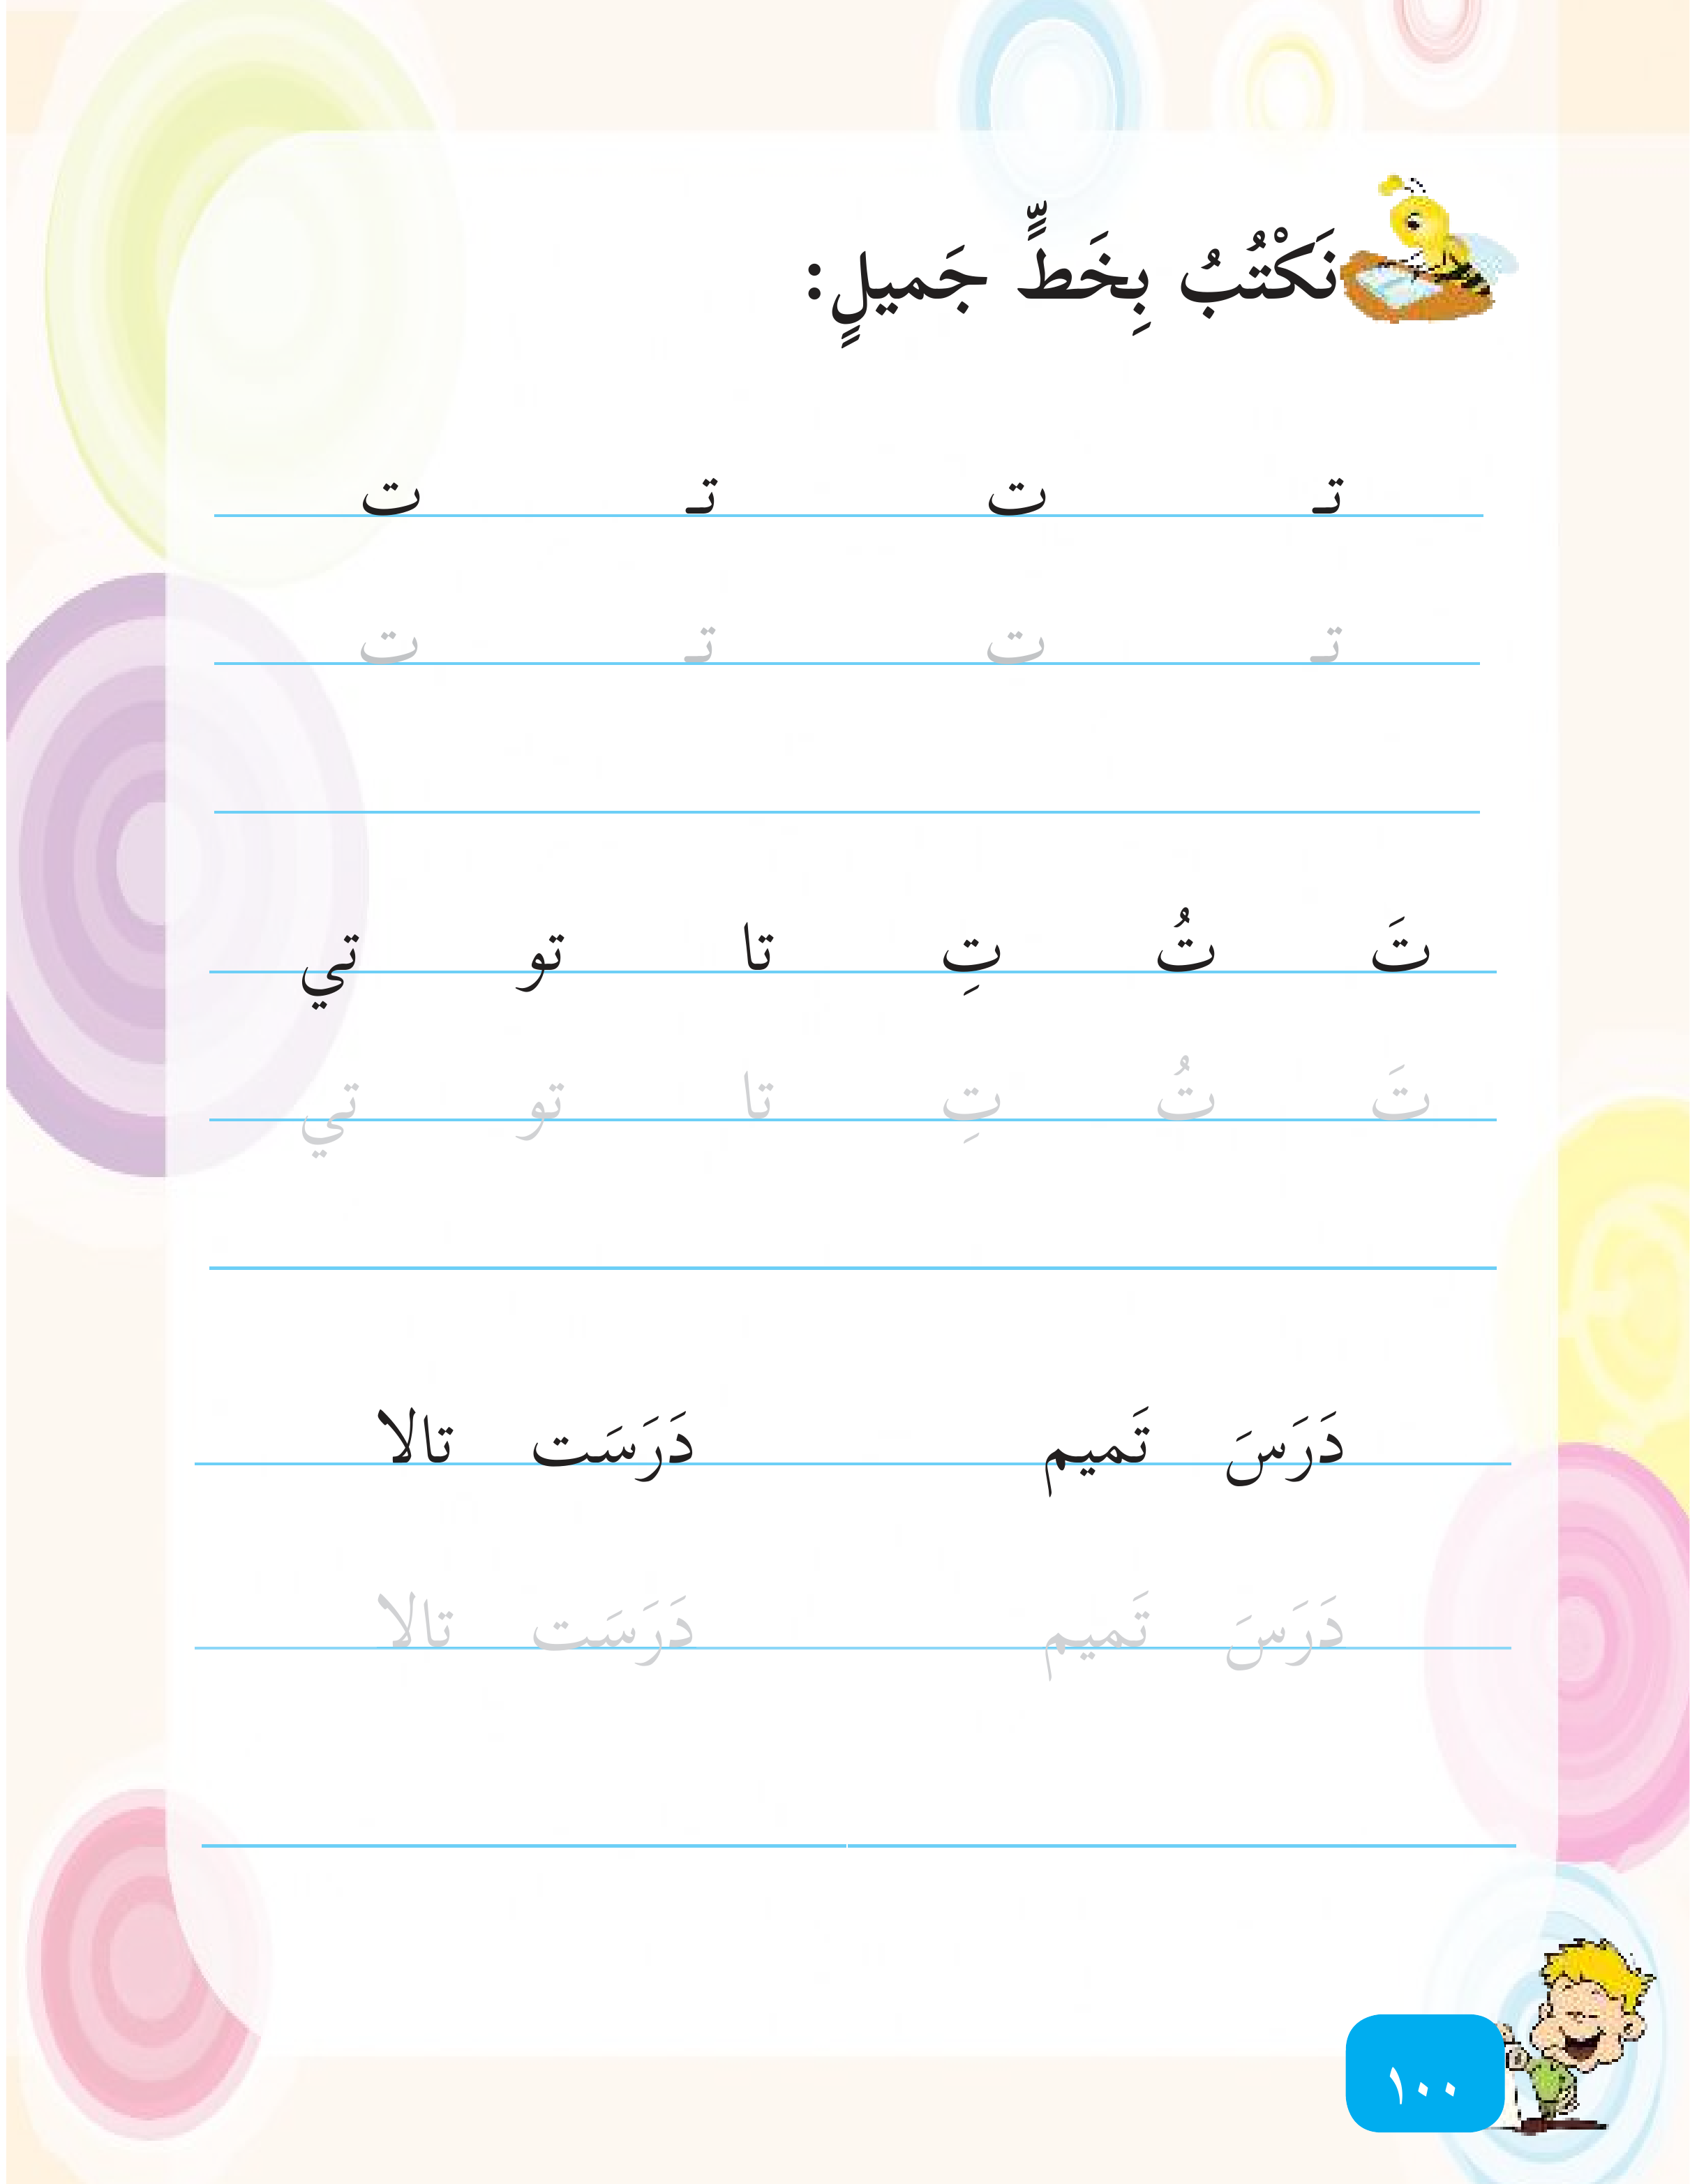 نَكْتُبُ بِخَطٍّ جَميلٍ:
تـ ت تـ ت
تـ ت تـ ت
تَ تُ تِ تا تو تي
تَ تُ تِ تا تو تي
دَرَسَ تَميم دَرَسَت تالا
دَرَسَ تَميم دَرَسَت تالا
١٠٠